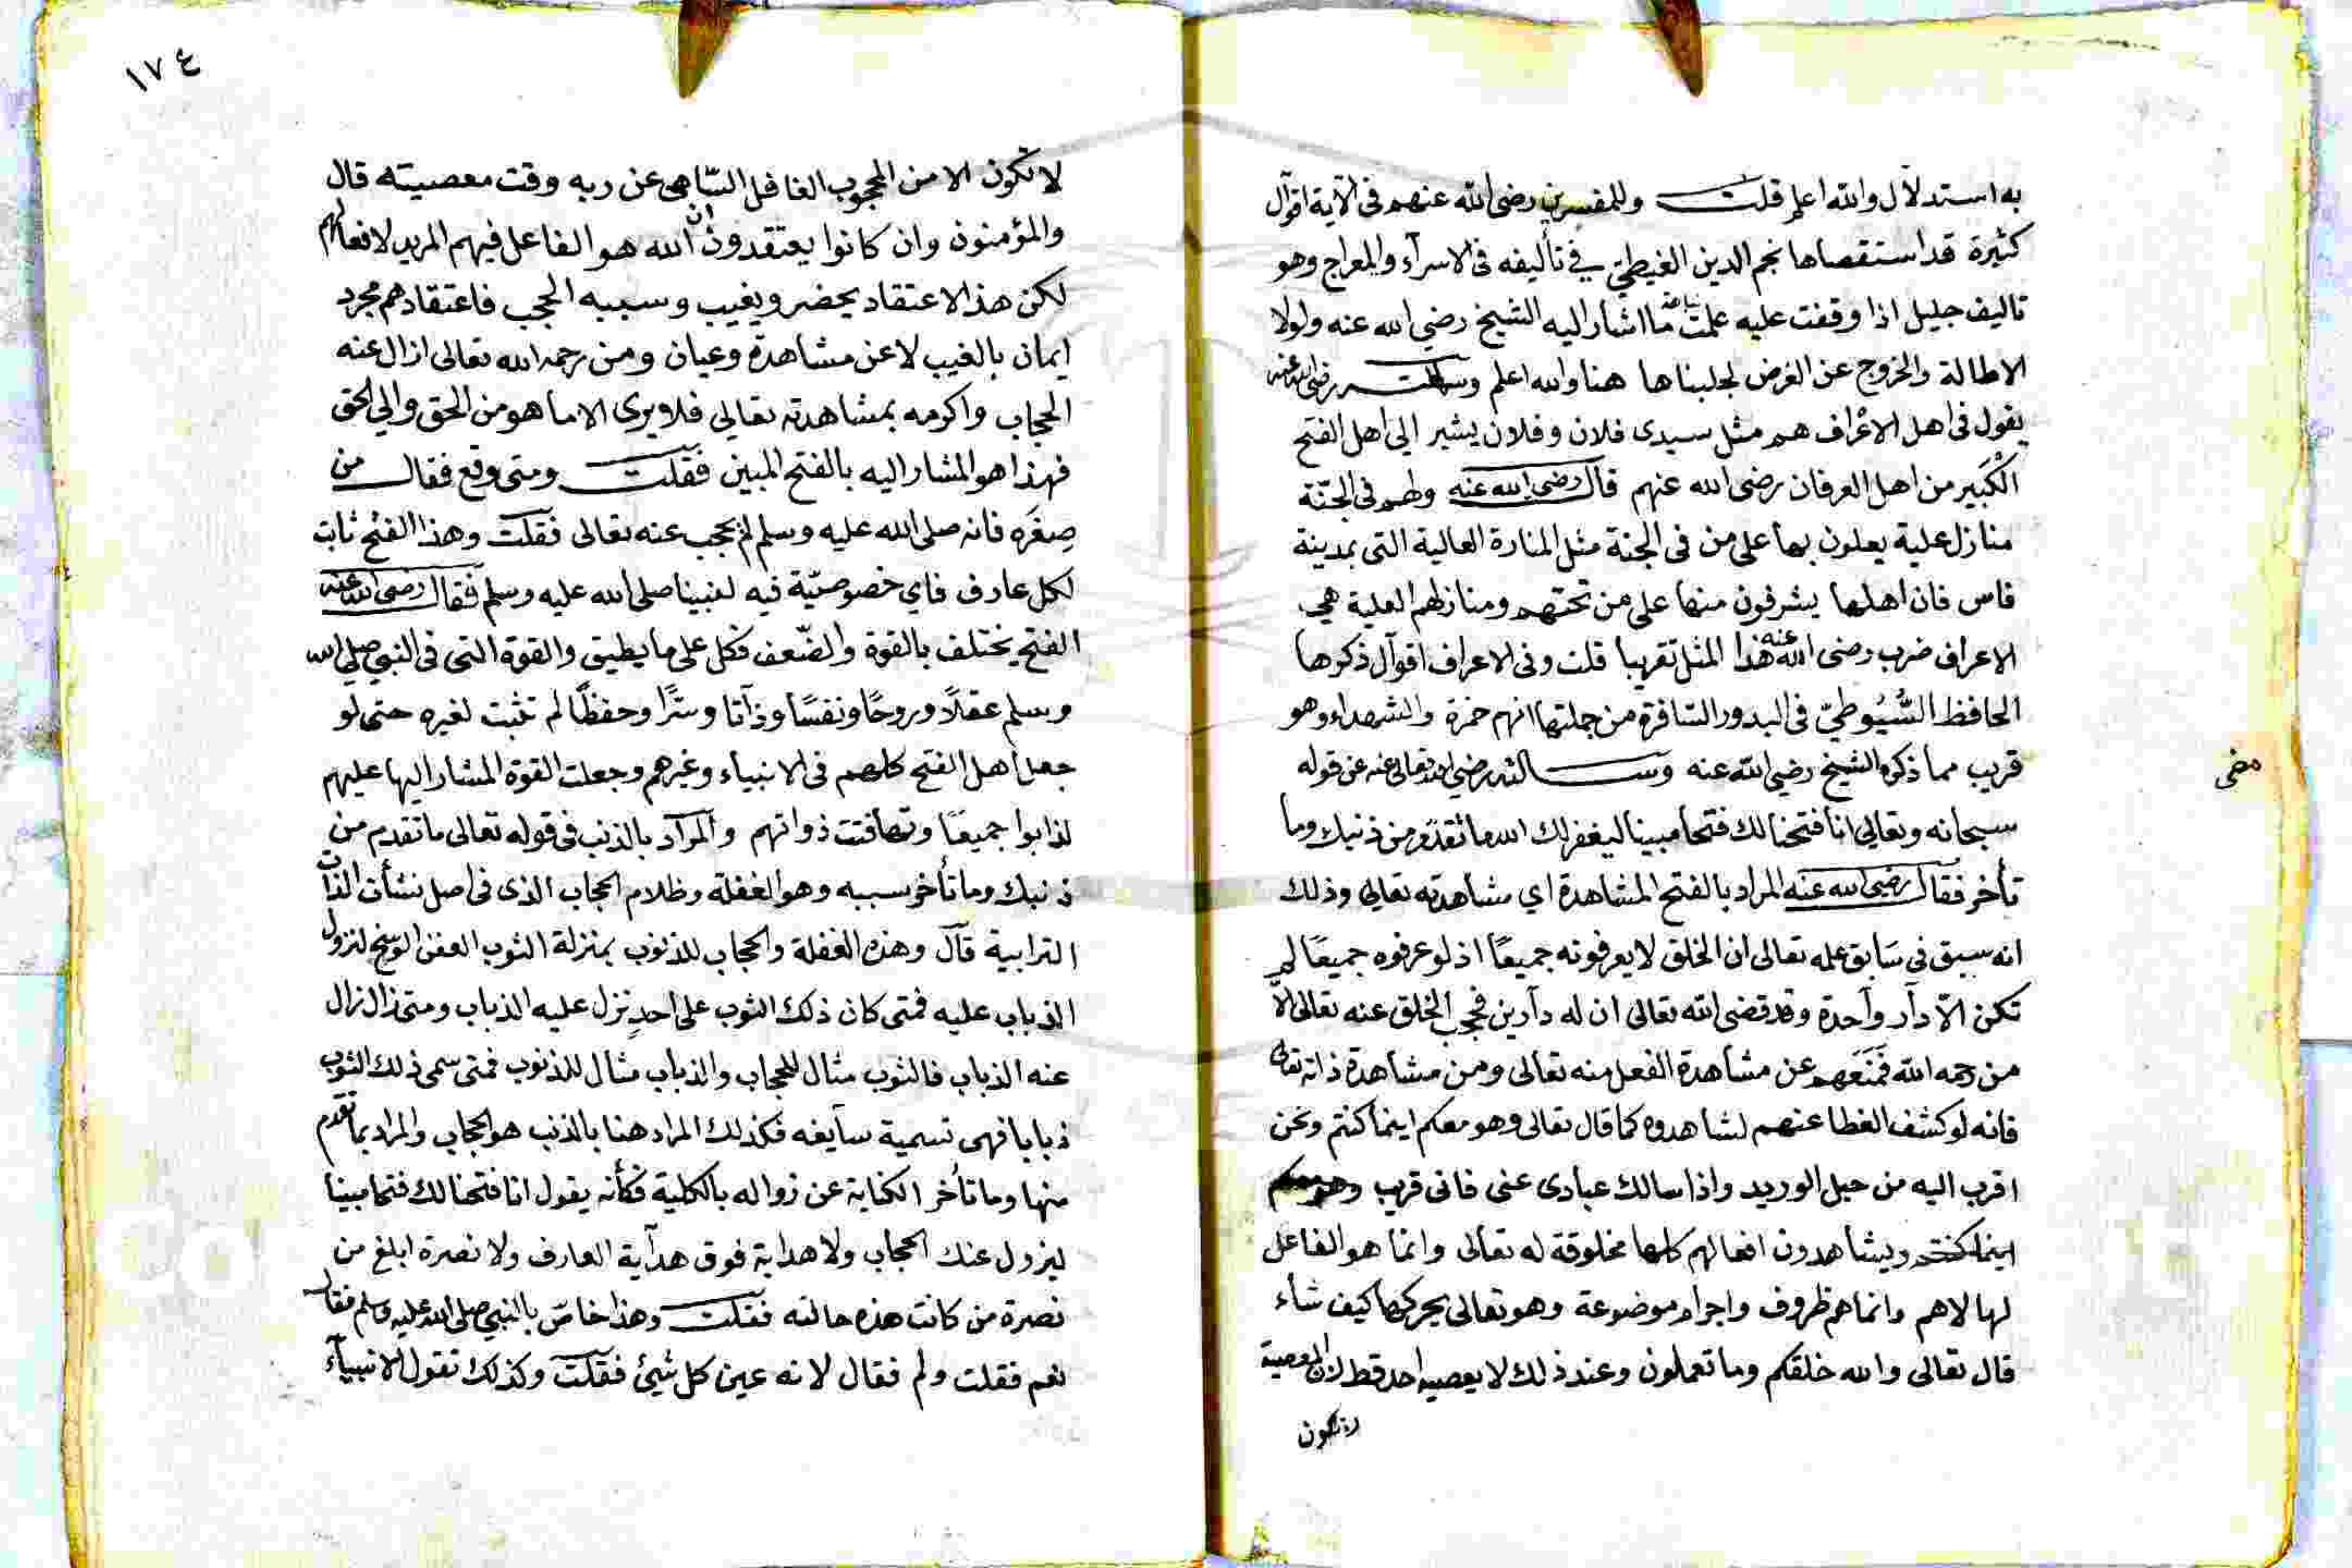 به استدلال والله اعلم قلت وللمفسرين رضى الله عنهم فى الآية اقوال
كثيرة قد استقصاها نجم الدين الغيطي في تأليفه فى الاسرآء والمعراج وهو
تاليف جليل اذا وقفت عليه علمت ما اشار اليه الشيخ رضي الله عنه ولولا
الاطالة والخروج عن الغرض لجلبناها هنا والله اعلم وسمعته رضى الله عنه
يقول فى اهل الاعراف هم مثل سيدى فلان وفلان يشير الى اهل الفتح
الكبير من اهل العرفان رضى الله عنهم قال رضى الله عنه ولهم فى الجنّة
منازل علية يعلون بها على من فى الجنة مثل المنارة العالية التى بمدينة
فاس فان اهلها يشرفون منها على من تحتهم ومنازلهم العلية هي
الاعراف ضرب رضى الله عنه هذا المثل تقريبا قلت وفى الاعراف اقوال ذكرها
الحافظ السُّيُوطيّ فى البدور السّافرة من جملتها انهم حمزة والشهداء وهو
قريب مما ذكره الشيخ رضي الله عنه وسالته رضي الله تعالى عنه عن قوله
مضى
سبحانه وتعالى انا فتحنا لك فتحا مبينا ليغفر لك الله ما تقدم من ذنبك وما
تأخر فقال رضى الله عنه المراد بالفتح المشاهدة اي مشاهدته تعالى وذلك
انه سبق فى سَابق علمه تعالى ان الخلق لا يعرفونه جميعًا اذ لو عرفوه جميعًا لم
تكن الاّ دآر وآحدة وقد قضى الله تعالى ان له دآرين فحجب الخلق عنه تعالى الاّ
من رحمه الله فمنعهم عن مشاهدة الفعل منه تعالى ومن مشاهدة ذاته تعالى
فانه لو كشف الغطا عنهم لشاهدوه كما قال تعالى وهو معكم اينما كنتم ونحن
اقرب اليه من حبل الوريد واذا سالك عبادى عنى فانى قريب وهو معكم
اينما كنتم ويشاهدون افعالهم كلها مخلوقة له تعالى وانما هو الفاعل
لها لا هم وانما هم ظروف واجرام موضوعة وهو تعالى يحركها كيف شاء
قال تعالى والله خلقكم وما تعملون وعند ذلك لا يعصيه احد قط لان المعصية
لا تكون
١٧٤
لا تكون الا من المحجوب الغافل السّاهى عن ربه وقت معصيته قال
والمؤمنون وان كانوا يعتقدون ان الله هو الفاعل فيهم المريد لافعالهم
لكن هذا الاعتقاد يحضر ويغيب وسببه الحجب فاعتقادهم مجرد
ايمان بالغيب لا عن مشاهدة وعيان ومن رحمه الله تعالى ازال عنه
الحجاب واكرمه بمشاهدته تعالى فلا يرى الا ما هو من الحق والى الحق
فهذا هو المشار اليه بالفتح المبين فقلت ومتى وقع فقال من
صِغَره فانه صلى الله عليه وسلم لم يحجب عنه تعالى فقلت وهذا الفتح ثابت
لكل عارف فاي خصوصيّة فيه لنبينا صلى الله عليه وسلم فقال رضى الله عنه
الفتح يختلف بالقوة والضّعف فكل على ما يطيق والقوة التى فى النبي صلى الله
وسلم عقلاً وروحًا ونفسًا وذآتا وسّرًا وحفظًا لم تثبت لغيره حتى لو
جعل اهل الفتح كلهم فى الانبياء وغيرهم وجعلت القوة المشار اليها عليهم
لذابوا جميعًا وتهافتت ذواتهم والمرآد بالذنب فى قوله تعالى ما تقدم من
ذنبك وما تأخر سببه وهو الغفلة وظلام الحجاب الذى فى اصل نشأت الذات
الترابية قال وهذه الغفلة والحجاب للذنوب بمنزلة الثوب العفن الوسخ لنزول
الذباب عليه فمتى كان ذلك الثوب على احدٍ نزل عليه الذباب ومتى زال زال
عنه الذباب فالثوب مثال للحجاب والذباب مثال للذنوب فمتى سمى ذلك الثوب
ذبابا فهى تسمية سآيغه فكذلك المراد هنا بالذنب هو الحجاب والمراد بما تقدم
منها وما تأخر الكناية عن زواله بالكلية فكأنه يقول انا فتحنا لك فتحا مبينا
ليزول عنك الحجاب ولا هداية فوق هدآية العارف ولا نصرة ابلغ من
نصرة من كانت هذه حالته فقلت وهذا خاصّ بالنبي صلى الله عليه وسلم فقال
نعم فقلت ولم فقال لانه عين كل شيئ فقلت وكذلك تقول الانبيآء